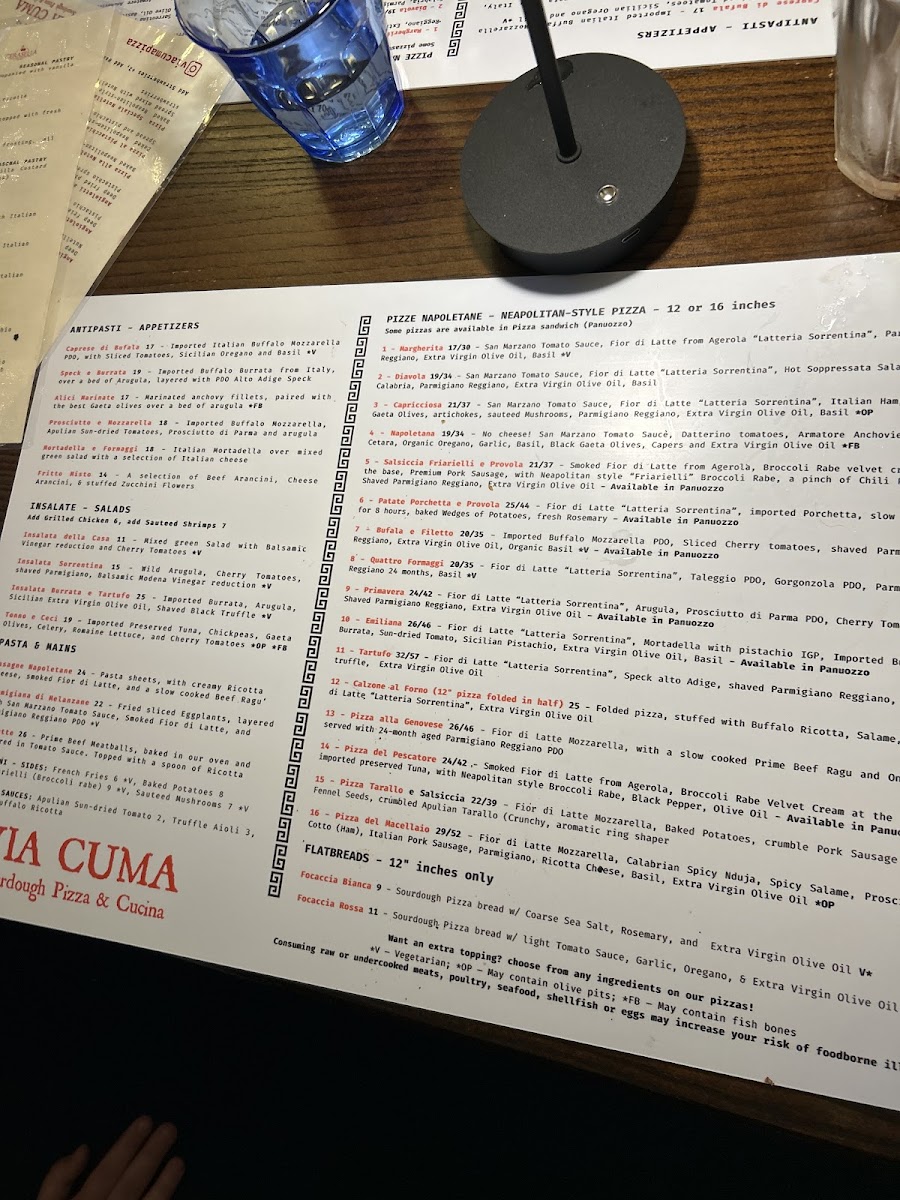 ANTIPASTI - APPETIZERS
Caprese di Bufala 17 - Imported Italian Buffalo Mozzarella
PDO, with Sliced Tomatoes, Sicilian Oregano and Basil *V
Speck e Burrata 19 - Imported Buffalo Burrata from Italy,
over a bed of Arugula, layered with PDO Alto Adige Speck
Alici Marinate 17 - Marinated anchovy fillets, paired with
the best Gaeta olives over a bed of arugula *FB
Prosciutto e Mozzarella 18 - Imported Buffalo Mozzarella,
Apulian Sun-dried Tomatoes, Prosciutto di Parma and arugula
Mortadella e Formaggi 18 - Italian Mortadella over mixed
green salad with a selection of Italian cheese
Fritto Misto 14 - A selection of Beef Arancini, Cheese
Arancini, & stuffed Zucchini Flowers
INSALATE - SALADS
Add Grilled Chicken 6, add Sauteed Shrimps 7
Insalata della Casa 11 - Mixed green Salad with Balsamic
Vinegar reduction and Cherry Tomatoes *V
Insalata Sorrentina 15 - Wild Arugula, Cherry Tomatoes,
shaved Parmigiano, Balsamic Modena Vinegar reduction *V
Insalata Burrata e Tartufo 25 - Imported Burrata, Arugula,
Sicilian Extra Virgin Olive Oil, Shaved Black Truffle *V
Tonno e Ceci 19 - Imported Preserved Tuna, Chickpeas, Gaeta
Olives, Celery, Romaine Lettuce, and Cherry Tomatoes *OP *FB
PASTA & MAINS
asagne Napoletane 24 - Pasta sheets, with creamy Ricotta
eese, smoked Fior di Latte, and a slow cooked Beef Ragu'
migiana di Melanzane 22 - Fried sliced Eggplants, layered
h San Marzano Tomato Sauce, Smoked Fior di Latte, and
igiano Reggiano PDO *V
tte 26 - Prime Beef Meatballs, baked in our oven and
red in Tomato Sauce. Topped with a spoon of Ricotta
NI - SIDES: French Fries 6 *V, Baked Potatoes 8
arielli (Broccoli rabe) 9 *V, Sauteed Mushrooms 7 *V
SAUCES: Apulian Sun-dried Tomato 2, Truffle Aioli 3,
uffalo Ricotta
VIA CUMA
urdough Pizza & Cucina
PIZZE NAPOLETANE - NEAPOLITAN-STYLE PIZZA - 12 or 16 inches
Some pizzas are available in Pizza sandwich (Panuozzo)
1 - Margherita 17/30 - San Marzano Tomato Sauce, Fior di Latte from Agerola "Latteria Sorrentina", Par
Reggiano, Extra Virgin Olive Oil, Basil *V
2 - Diavola 19/34 - San Marzano Tomato Sauce, Fior di Latte "Latteria Sorrentina", Hot Soppressat Sala
Calabria, Parmigiano Reggiano, Extra Virgin Olive Oil, Basil
3 - Capricciosa 21/37 - San Marzano Tomato Sauce, Fior di Latte "Latteria Sorrentina", Italian Ham
Gaeta Olives, artichokes, sauteed Mushrooms, Parmigiano Reggiano, Extra Virgin Olive Oil, Basil *OP
4 - Napoletana 19/34 - No cheese! San Marzano Tomato Sauce, Datterino tomatoes, Armatore Anchovie
Cetara, Organic Oregano, Garlic, Basil, Black Gaeta Olives, Capers and Extra Virgin Olive Oil *FB
5 - Salsiccia Friarielli e Provola 21/37 - Smoked Fior di Latte from Agerola, Broccoli Rabe velvet cr
the base, Premium Pork Sausage, with Neapolitan style "Friarielli" Broccoli Rabe, a pinch of Chili
Shaved Parmigiano Reggiano, Extra Virgin Olive Oil - Available in Panuozzo
6 - Patate Porchetta e Provola 25/44 - Fior di Latte "Latteria Sorrentina", imported Porchetta, slow
for 8 hours, baked Wedges of Potatoes, fresh Rosemary - Available in Panuozzo
7 - Bufala e Filetto 20/35 - Imported Buffalo Mozzarella PDO, Sliced Cherry tomatoes, shaved Parm
Reggiano, Extra Virgin Olive Oil, Organic Basil *V - Available in Panuozzo
8 - Quattro Formaggi 20/35 - Fior di Latte "Latteria Sorrentina", Taleggio PDO, Gorgonzola PDO, Parm
Reggiano 24 months, Basil *V
9 - Primavera 24/42 - Fior di Latte "Latteria Sorrentina", Arugula, Prosciutto di Parma PDO, Cherry Tom
Shaved Parmigiano Reggiano, Extra Virgin Olive Oil - Available in Panuozzo
10 - Emiliana 26/46 - Fior di Latte "Latteria Sorrentina", Mortadella with pistachio IGP, Imported B
Burrata, Sun-dried Tomato, Sicilian Pistachio, Extra Virgin Olive Oil, Basil - Available in Panuozzo
11 - Tartufo 32/57 - Fior di Latte "Latteria Sorrentina", Speck alto Adige, shaved Parmigiano Reggiano,
truffle, Extra Virgin Olive Oil
12 - Calzone al Forno (12" pizza folded in half) 25 - Folded pizza, stuffed with Buffalo Ricotta, Salame,
di Latte "Latteria Sorrentina", Extra Virgin Olive Oil
13 - Pizza alla Genovese 26/46 - Fior di Latte Mozzarella, with a slow cooked Prime Beef Ragu and On
served with 24-month aged Parmigiano Reggiano PDO
14 - Pizza del Pescatore 24/42 - Smoked Fior di Latte from Agerola, Broccoli Rabe Velvet Cream at the
imported preserved Tuna, with Neapolitan style Broccoli Rabe, Black Pepper, Olive Oil - Available in Panuo
15 - Pizza Tarallo e Salsiccia 22/39 - Fior di Latte Mozzarella, Baked Potatoes, crumble Pork Sausage
Fennel Seeds, crumbled Apulian Tarallo (Crunchy, aromatic ring shaper
16 - Pizza del Macellaio 29/52 - Fior di Latte Mozzarella, Calabrian Spicy Nduja, Spicy Salame, Prosci
Cotto (Ham), Italian Pork Sausage, Parmigiano, Ricotta Cheese, Basil, Extra Virgin Olive Oil *OP
FLATBREADS - 12" inches only
Focaccia Bianca 9 - Sourdough Pizza bread w/ Coarse Sea Salt, Rosemary, and Extra Virgin Olive Oil V*
Focaccia Rossa 11 - Sourdough Pizza bread w/ light Tomato Sauce, Garlic, Oregano, & Extra Virgin Olive Oil
Want an extra topping? choose from any ingredients on our pizzas!
*V - Vegetarian; *OP - May contain olive pits; *FB - May contain fish bones
Consuming raw or undercooked meats, poultry, seafood, shellfish or eggs may increase your risk of foodborne ill
ANTIPASTI - APPETIZERS
viacumapizza
SEASONAL PASTRY